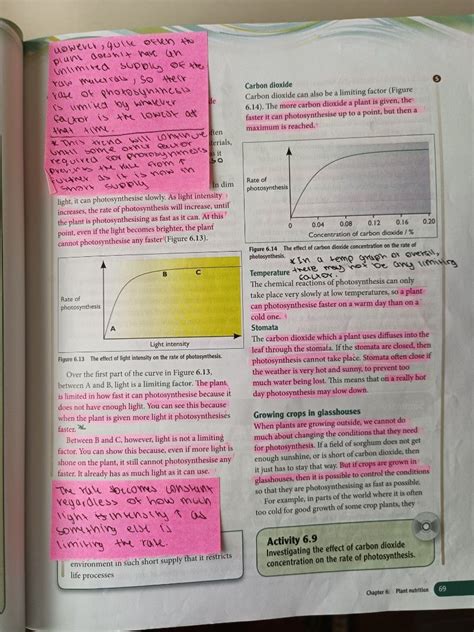 However, quite often the
plant doesn't have an
unlimited supply of the
raw materials, so their
rate of photosynthesis
is limited by whatever
factor is the lowest at
that time.
* This trend will continue
until some other factor
required for photosynthesis
prevents the rate from ↑
further as it is now in
short supply
In dim
light, it can photosynthesise slowly. As light intensity
increases, the rate of photosynthesis will increase, until
the plant is photosynthesising as fast as it can. At this
point, even if the light becomes brighter, the plant
cannot photosynthesise any faster (Figure 6.13).
Rate of
photosynthesis
A
B
C
Light intensity
Figure 6.13 The effect of light intensity on the rate of photosynthesis.
Over the first part of the curve in Figure 6.13,
between A and B, light is a limiting factor. The plant
is limited in how fast it can photosynthesise because it
does not have enough light. You can see this because
when the plant is given more light it photosynthesises
faster. *
Between B and C, however, light is not a limiting
factor. You can show this because, even if more light is
shone on the plant, it still cannot photosynthesise any
faster. It already has as much light as it can use.
The rate becomes constant
regardless of how much
light intensity ↑ as
something else is
limiting the rate.
environment in such short supply that it restricts
life processes
Carbon dioxide
Carbon dioxide can also be a limiting factor (Figure
6.14). The more carbon dioxide a plant is given, the
faster it can photosynthesise up to a point, but then a
maximum is reached.
Rate of
photosynthesis
0 0.04 0.08 0.12 0.16 0.20
Concentration of carbon dioxide / %
Figure 6.14 The effect of carbon dioxide concentration on the rate of
photosynthesis.
* In a temp graph or overall,
there may not be any limiting
factor.
Temperature
The chemical reactions of photosynthesis can only
take place very slowly at low temperatures, so a plant
can photosynthesise faster on a warm day than on a
cold one.
Stomata
The carbon dioxide which a plant uses diffuses into the
leaf through the stomata. If the stomata are closed, then
photosynthesis cannot take place. Stomata often close if
the weather is very hot and sunny, to prevent too
much water being lost. This means that on a really hot
day photosynthesis may slow down.
Growing crops in glasshouses
When plants are growing outside, we cannot do
much about changing the conditions that they need
for photosynthesis. If a field of sorghum does not get
enough sunshine, or is short of carbon dioxide, then
it just has to stay that way. But if crops are grown in
glasshouses, then it is possible to control the conditions
so that they are photosynthesising as fast as possible.
For example, in parts of the world where it is often
too cold for good growth of some crop plants, they
Activity 6.9
Investigating the effect of carbon dioxide
concentration on the rate of photosynthesis.
Chapter 6: Plant nutrition 69